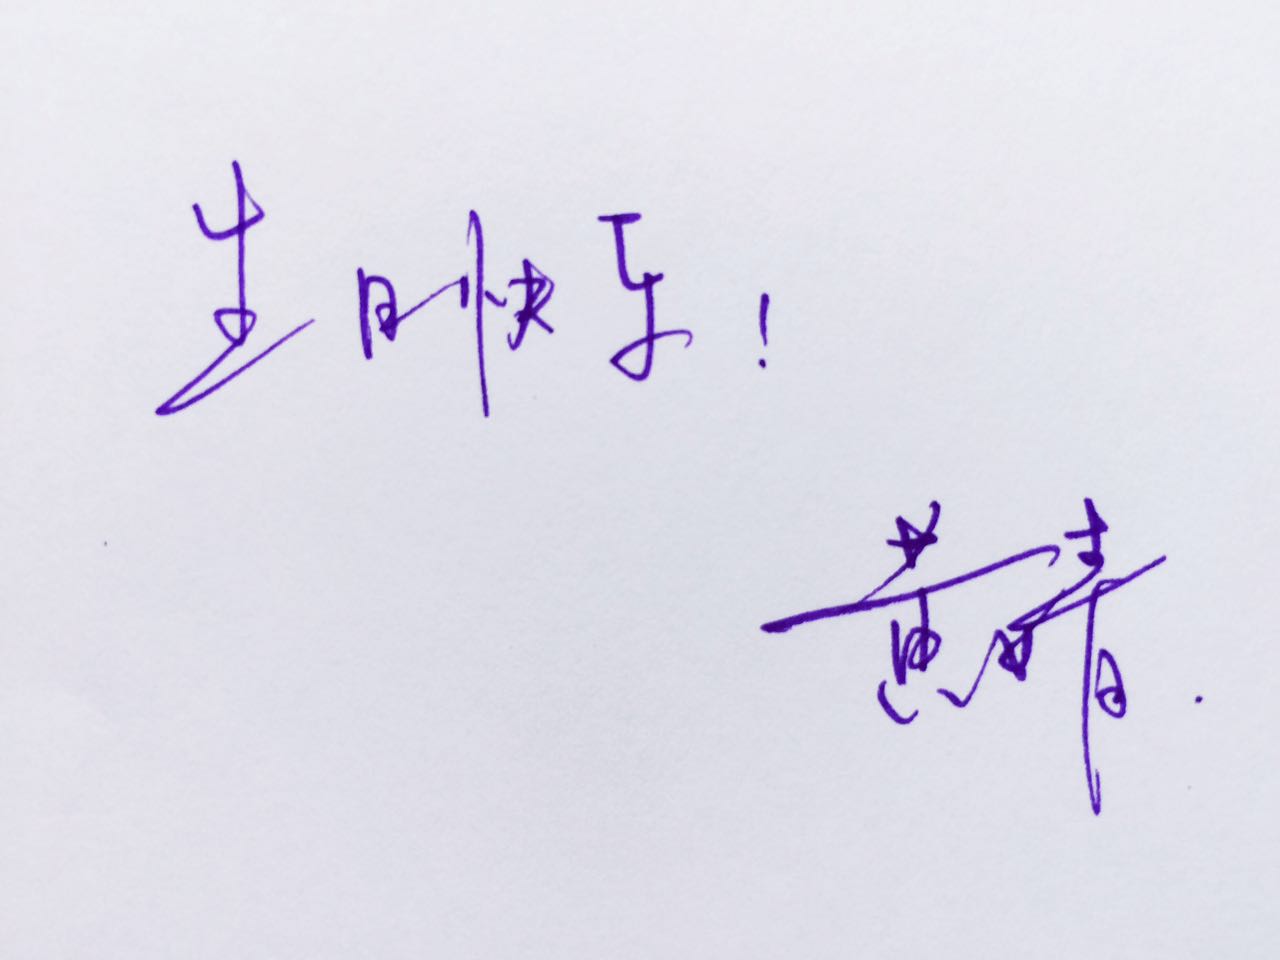 生日快乐！
黄晴.